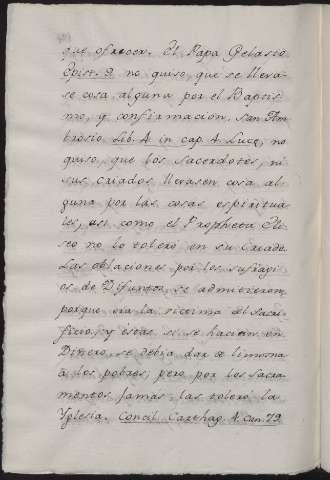 que ofrecer. El Papa Gelasio
Epist. 9. no quiso, que se lleva-
se cosa alguna por el Baptis-
mo, y confirmacion. San Am-
brosio Lib. 4 in cap. 4. Lucę, no
quiso, que los sacerdotes, ni
sus criados llevasen cosa al-
guna por las cosas espiritua-
les, asi como el Propheta Eli-
seo no lo tolerò en su Criado.
Las oblaciones por los sufragi-
os de Difuntos, se admitieron,
porque era la victima del Sacri-
ficio, y estas si se hacian en
Dinero, se debia dar de limosna
à los pobres; pero por los Sacra-
mentos jamas, las tolerò la
Yglesia. Concil Carthag. 4. Can. 79.